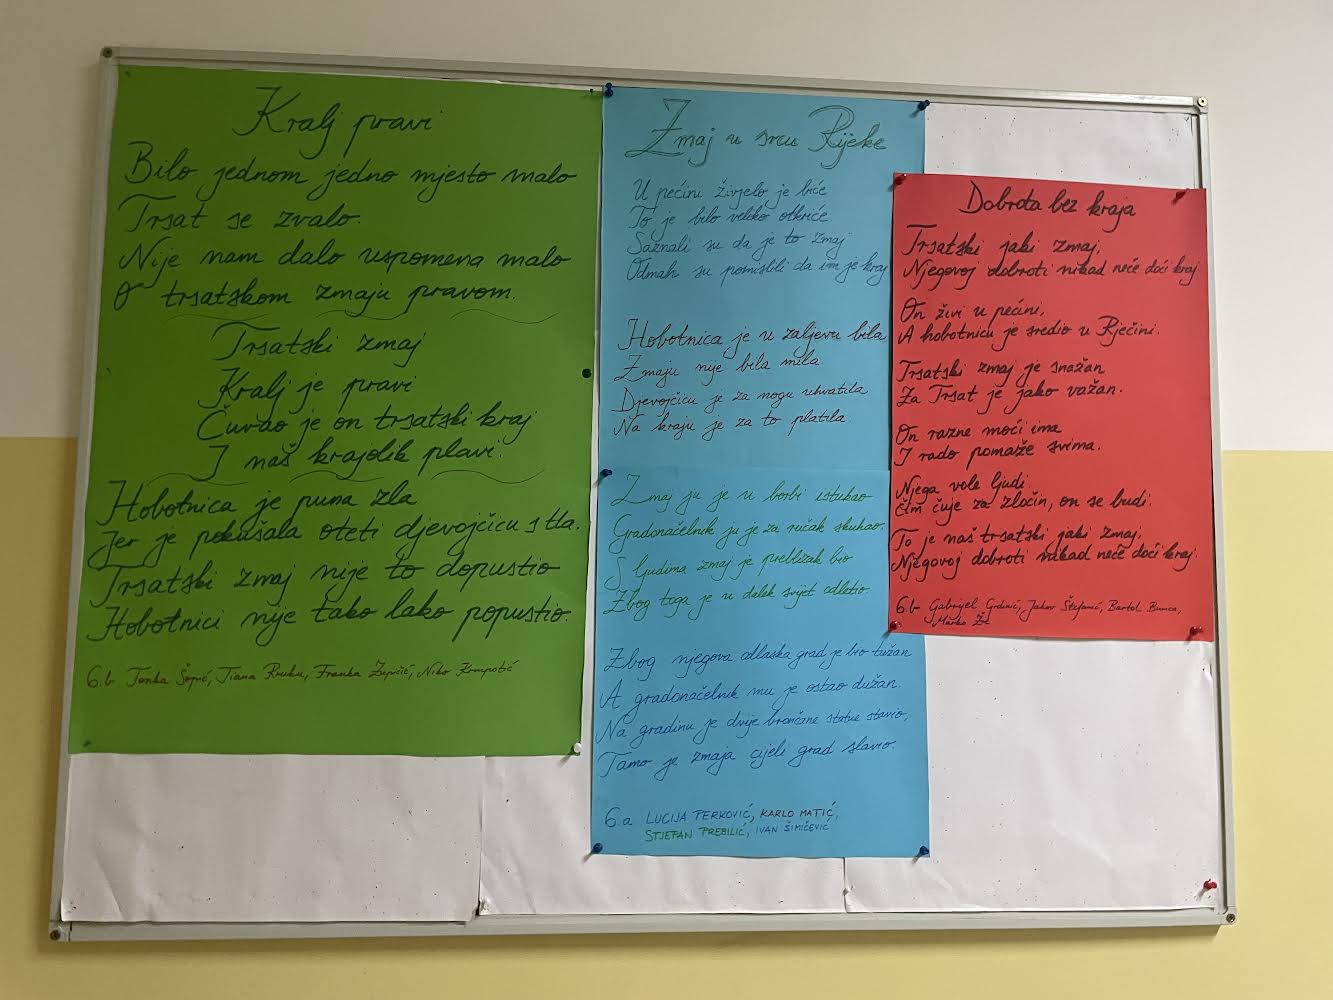 Kralj pravi
Bilo jednom jedno mjesto malo
Trsat se zvalo.
Nije nam dalo uspomena malo
O trsatskom zmaju pravom.
Trsatski zmaj
Kralj je pravi
Čuvao je on trsatski kraj
I naš krajolik plavi.
Hobotnica je puna zla
Jer je pokušala oteti djevojčicu s tla.
Trsatski zmaj nije to dopustio
Hobotnici nije tako lako popustio.
6.b Tonka Tiara Franka Niko
Zmaj u srcu Rijeke
U pećini živjelo je biće
To je bilo veliko otkriće
Saznali su da je to zmaj
Odmah su pomislili da im je kraj
Hobotnica je u zaljevu bila
Zmaju nije bila mila
Djevojčicu je za nogu uhvatila
Na kraju je za to platila
Zmaj ju je u borbi istukao
Gradonačelnik ju je za ručak skuhao.
S ljudima zmaj je prebližak bio
Zbog toga je u dalek svijet odletio.
Zbog njegova odlaska grad je bio tužan
A gradonačelnik mu je ostao dužan.
Na gradinu je dvije brončane statue stavio,
Tamo je zmaja cijeli grad slavio.
6.a LUCIJA FERKOVIĆ, KARLO MATIĆ,
STJEPAN PREBILIĆ, IVAN ŠIMIČEVIĆ
Dobrota bez kraja
Trsatski jaki zmaj,
Njegovoj dobroti nikad neće doći kraj
On živi u pećini,
A hobotnicu je sredio u Rječini.
Trsatski zmaj je snažan
Za Trsat je jako važan.
On razne moći ima
I rado pomaže svima.
Njega vole ljudi
Čim čuje za zločin, on se budi.
To je naš trsatski jaki zmaj,
Njegovoj dobroti nikad neće doći kraj.
6.b Gabrijel Grdinić, Jakov Štefanić, Bartol
Marko